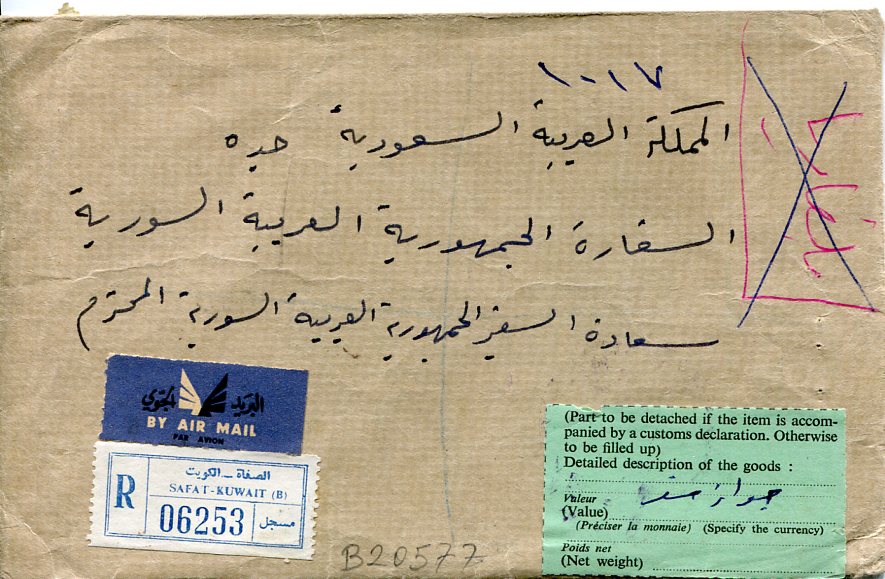 ١٠١٧
المملكة العربية السعودية جده
السفارة الجمهورية العربية السورية
سعادة السفير الجمهورية العربية السورية المحترم
البريد الجوي
BY AIR MAIL
PAR AVION
R
الصفاة - الكويت
SAFAT-KUWAIT (B)
06253
مسجل
B20577
(Part to be detached if the item is accom-
panied by a customs declaration. Otherwise
to be filled up)
Detailed description of the goods :
جواز سفر
Valeur
(Value)
(Préciser la monnaie) (Specify the currency)
Poids net
(Net weight)